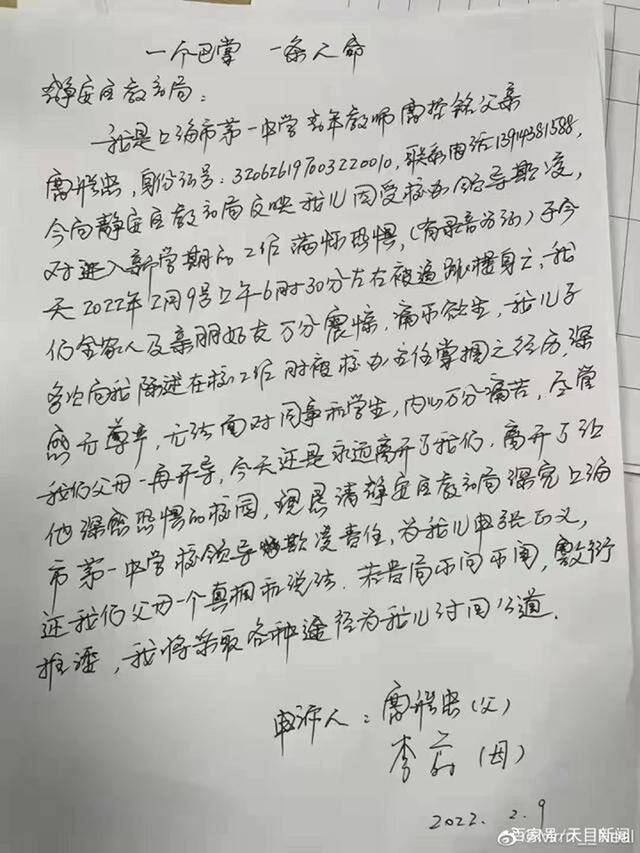 一个巴掌 一条人命
静安区教育局：
我是上海市第一中学青年教师 父亲
身份证号：320626197003220010，联系电话13914381588，
今向静安区教育局反映我儿因受校办领导欺凌，
对进入新学期的工作满怀恐惧，(有录音为证)于今
天2022年2月9号上午6时30分左右被逼跳楼身亡，我
们全家人及亲朋好友万分震惊，痛不欲生，我儿子
多次向我陈述在校工作时被校办主任掌掴之经历，深
感无尊严，无法面对同事和学生，内心万分痛苦，尽管
我们父母一再开导，今天还是永远离开了我们，离开了让
他深感恐惧的校园，现恳请静安区教育局深究上海
市第一中学校领导欺凌责任，为我儿申张正义，
还我们父母一个真相和说法．若贵局不问不闻，敷衍
推诿，我将采取各种途径为我儿讨回公道．
申诉人：(父)
李 (母)
2022．2．9
百家号/天目新闻